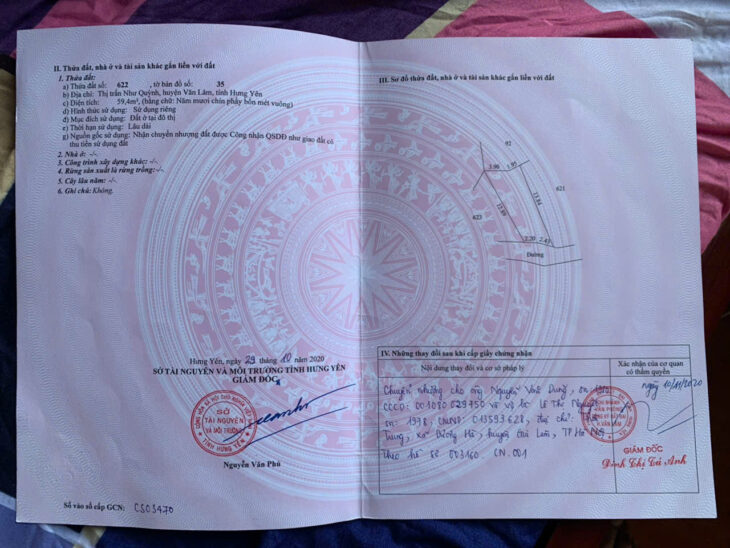 II. Thửa đất, nhà ở và tài sản khác gắn liền với đất
1. Thửa đất:
a) Thửa đất số: 622 , tờ bản đồ số: 35
b) Địa chỉ: Thị trấn Như Quỳnh, huyện Văn Lâm, tỉnh Hưng Yên
c) Diện tích: 59,4m², (bằng chữ: Năm mươi chín phẩy bốn mét vuông)
d) Hình thức sử dụng: Sử dụng riêng
đ) Mục đích sử dụng: Đất ở tại đô thị
e) Thời hạn sử dụng: Lâu dài
g) Nguồn gốc sử dụng: Nhận chuyển nhượng đất được Công nhận QSDĐ như giao đất có
thu tiền sử dụng đất
2. Nhà ở: -/-.
3. Công trình xây dựng khác: -/-.
4. Rừng sản xuất là rừng trồng: -/-.
5. Cây lâu năm: -/-.
6. Ghi chú: Không.
Hưng Yên, ngày 29 tháng 10 năm 2020
SỞ TÀI NGUYÊN VÀ MÔI TRƯỜNG TỈNH HƯNG YÊN
GIÁM ĐỐC
SỞ
TÀI NGUYÊN
VÀ MÔI TRƯỜNG
TỈNH HƯNG YÊN
Nguyễn Văn Phú
Số vào sổ cấp GCN: CS05470
III. Sơ đồ thửa đất, nhà ở và tài sản khác gắn liền với đất
92
3.96 1.95
621
13.84
12.89
623
2.20 2.43
Đường
IV. Những thay đổi sau khi cấp giấy chứng nhận
Nội dung thay đổi và cơ sở pháp lý
Xác nhận của cơ quan
có thẩm quyền
Chuyển nhượng cho ông Nguyễn Văn Dung, sn
CCCD: 001080029750 và vợ là: Lê Thị Nguyệt
sn: 1978, CMND: 013593628, địa chỉ:
Trung, xã Dương Hà, huyện Gia Lâm, TP Hà Nội
theo hồ sơ số 003160. CN. 001
ngày 10/11/2020
GIÁM ĐỐC
Đinh Thị Tú Anh